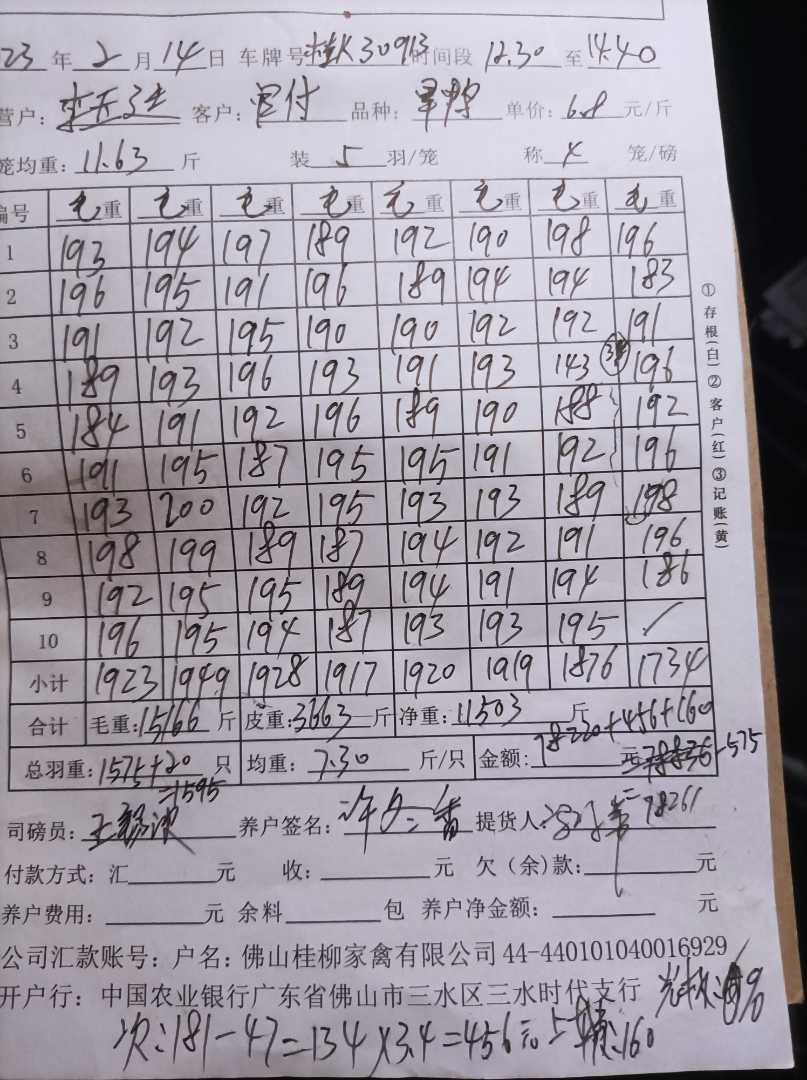 23 年 2 月 14 日 车牌号 桂K30913 时间段 12.30 至 14.40
营户: 客户: 品种: 单价: 6.8 元/斤
笼均重: 11.63 斤 装 5 羽/笼 称 4 笼/磅
编号 毛重 毛重 毛重 毛重 毛重 毛重 毛重 毛重
1 193 194 197 189 192 190 198 196
2 196 195 191 196 189 194 194 183
3 191 192 195 190 190 192 192 191
4 189 193 196 193 191 193 143 196
5 184 191 192 196 189 190 188 192
6 191 195 187 195 195 191 192 196
7 193 200 192 195 193 193 189 198
8 198 199 189 187 194 192 191 196
9 192 195 195 189 194 191 194 186
10 196 195 194 187 193 193 195 ✓
小计 1923 1949 1928 1917 1920 1919 1876 1734
合计 毛重: 15166 斤 皮重: 3663 斤 净重: 11503 斤
总羽重: 1575+20 只 均重: 7.30 斤/只 金额: 78220+456+160 元
=1595 =78836-575
司磅员: 养户签名: 提货人: =78261
付款方式: 汇 元 收: 元 欠(余)款: 元
养户费用: 元 余料 包 养户净金额: 元
公司汇款账号: 户名: 佛山桂柳家禽有限公司 44-440101040016929
开户行: 中国农业银行广东省佛山市三水区三水时代支行
次: 181-47=134×3.4=456元 160
①存根(白)②客户(红)③记账(黄)